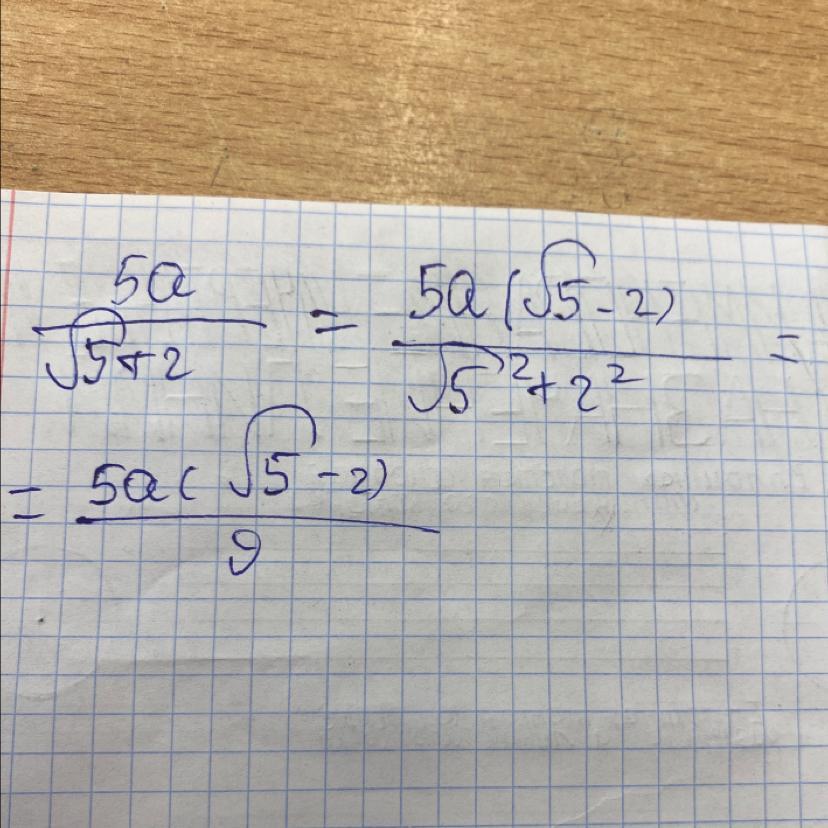 5a / (√5+2) = 5a(√5-2) / (√5²+2²) =
= 5a(√5-2) / 9